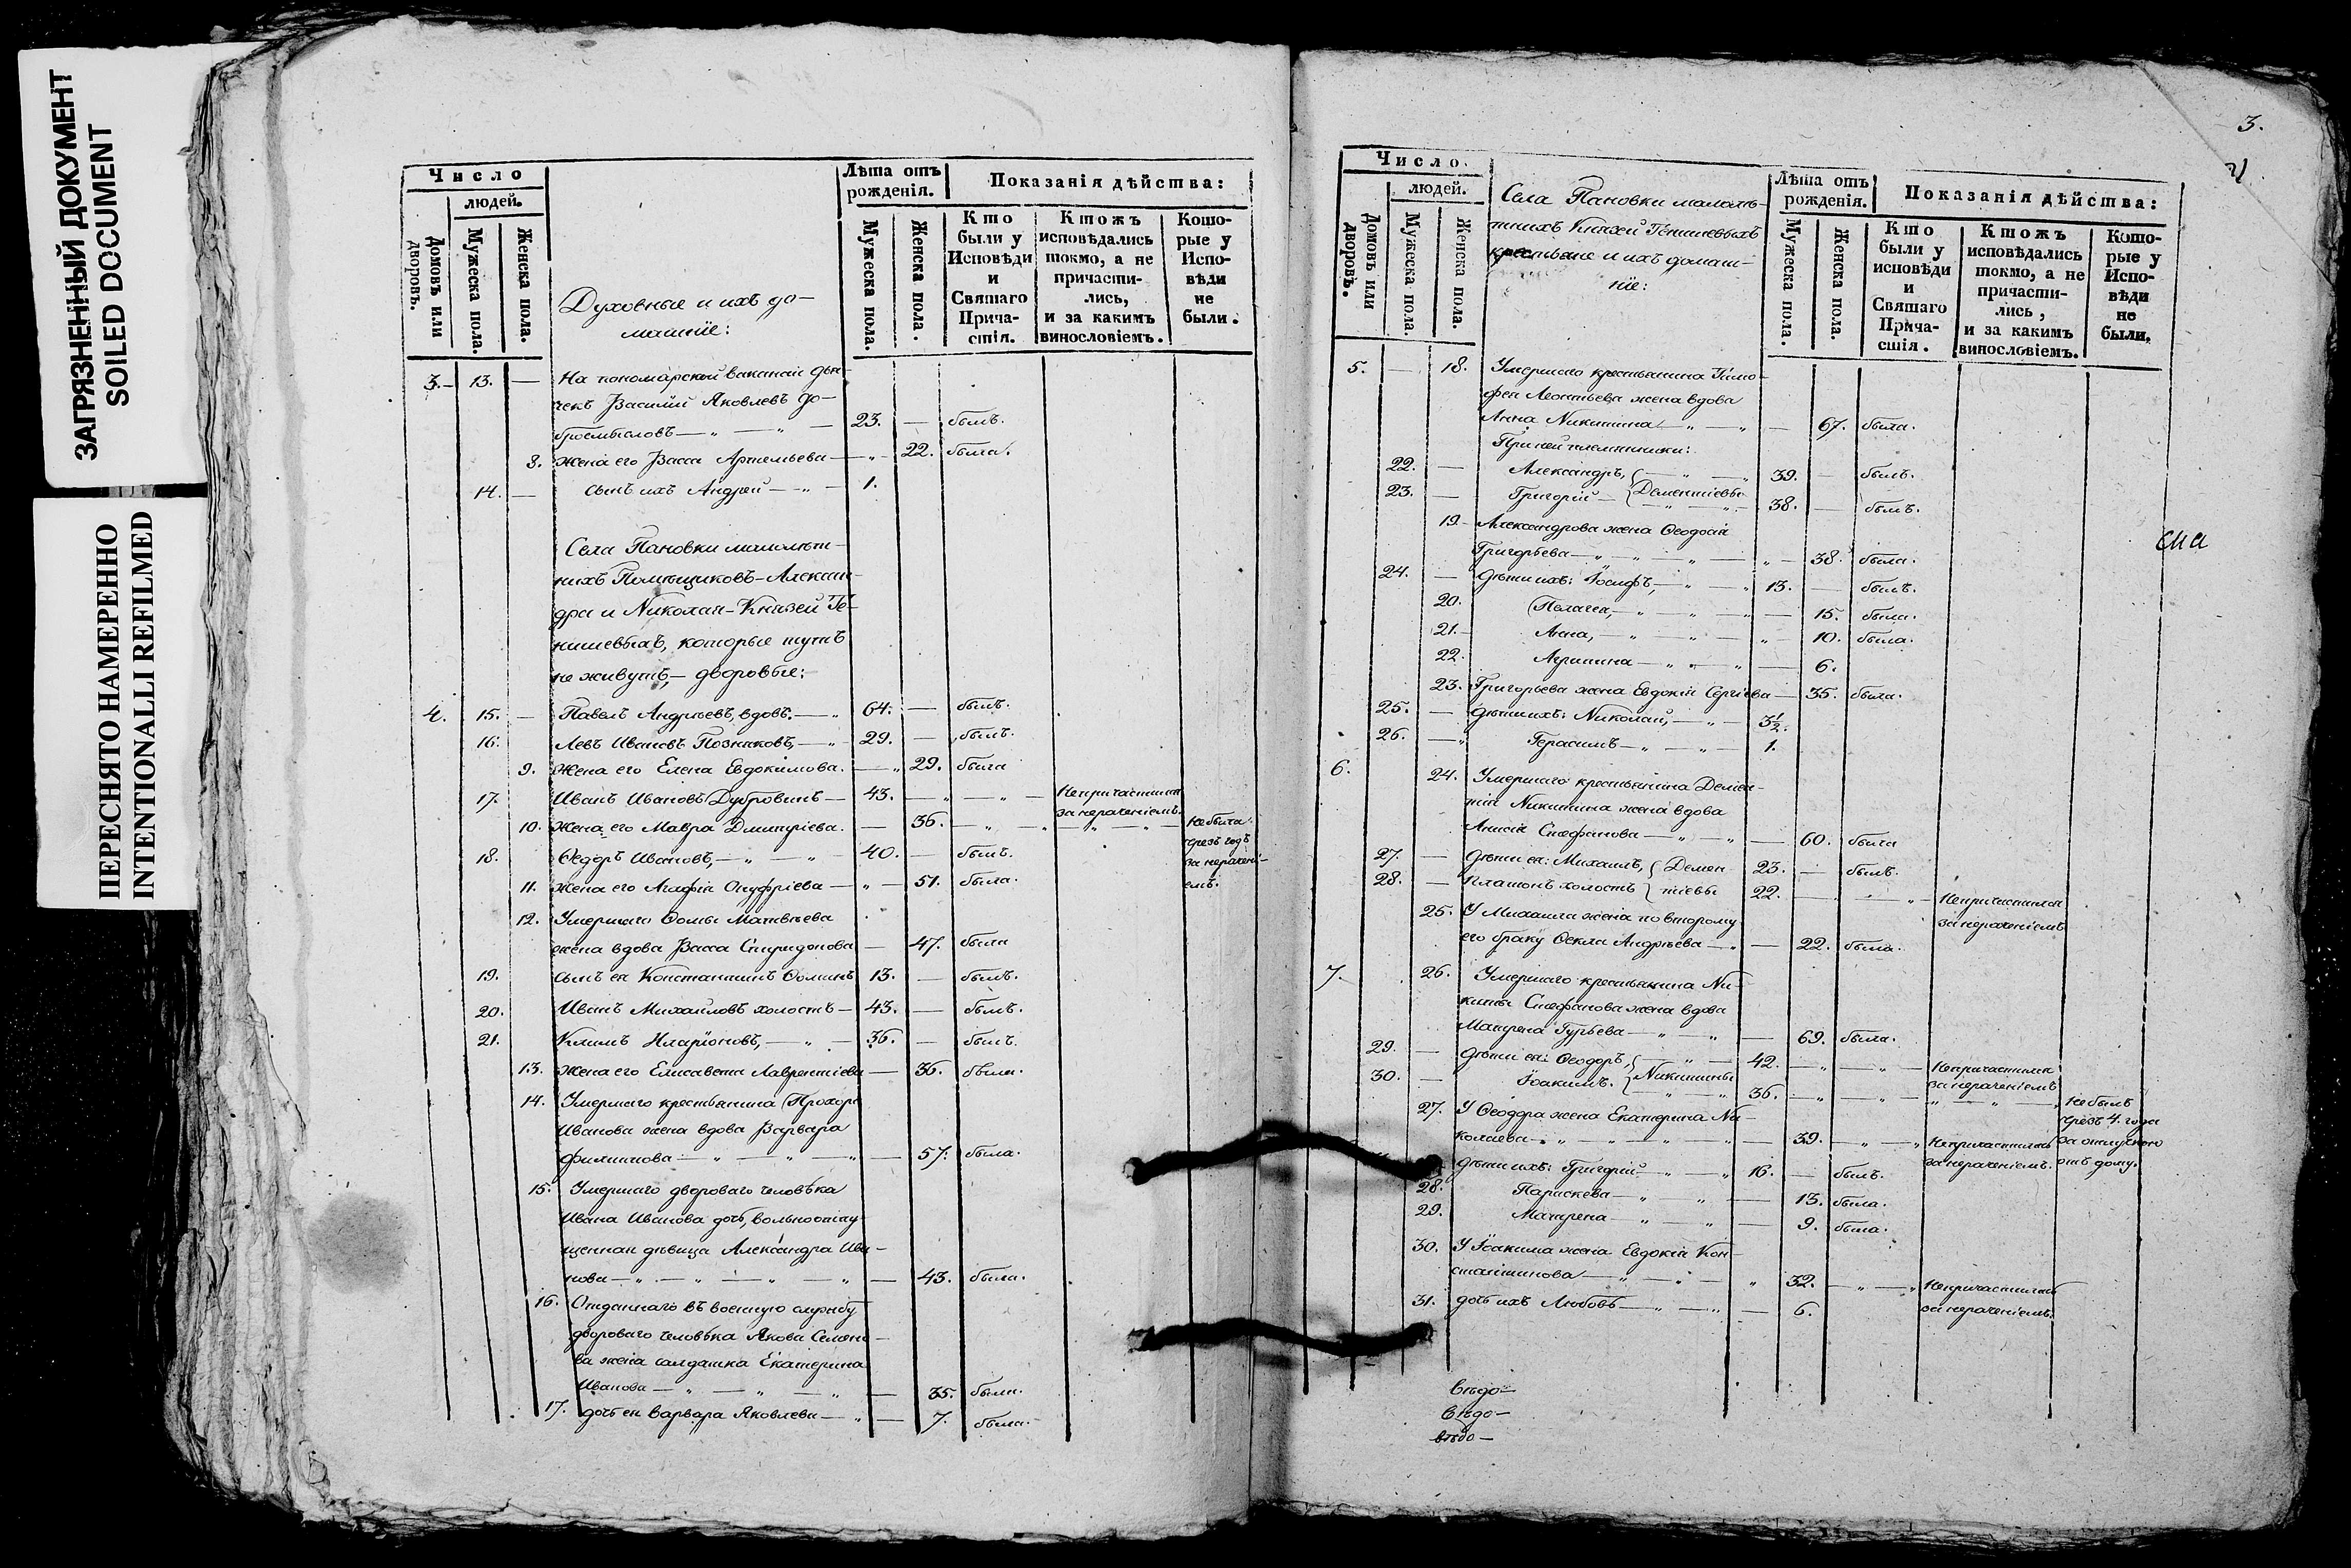 ЗАГРЯЗНЕННЫЙ ДОКУМЕНТ
SOILED DOCUMENT
ПЕРЕСНЯТО НАМЕРЕННО
INTENTIONALLI REFILMED
Число
людей.
Домовъ или дворовъ.
Мужеска пола.
Женска пола.
Духовные и ихъ до-
машніе:
Лѣта отъ
рожденія.
Мужеска пола.
Женска пола.
Показанія дѣйства:
Кто
были у
Исповѣди
и
Святаго
Прича-
стія.
Ктожъ
исповѣдались
токмо, а не
причасти-
лись,
и за какимъ
винословіемъ.
Кото-
рые у
Испо-
вѣди
не
были.
3. 13. На пономарской вакансіи дья-
чекъ Василій Яковлевъ До-
бросмысловъ 23. былъ.
8. жена его Васса Артемьева 22. была.
14. сынъ ихъ Андрей 1.
Села Пановки малолѣт-
нихъ Помѣщиковъ Алексан-
дра и Николая Князей Ге-
нишевыхъ, которые тутъ
не живутъ, дворовые:
4. 15. Павелъ Андреевъ, вдовъ. 64. былъ.
16. Левъ Ивановъ Позняковъ, 29. былъ.
9. Жена его Елена Евдокимова. 29. была
17. Иванъ Ивановъ Дубровинъ 43. Непричастился
за нераченіемъ.
10. Жена его Мавра Дмитріева. 36. Не была
чрезъ годъ
за нерачені-
емъ.
18. Ѳедоръ Ивановъ, 40. былъ.
11. жена его Агафія Онуфріева 51. была.
12. Умершаго Ѳомы Матвѣева
жена вдова Васса Спиридонова 47. была
19. сынъ ея Константинъ Ѳоминъ 13. былъ.
20. Иванъ Михайловъ холостъ 43. былъ.
21. Климъ Иларіоновъ, 36. былъ.
13. жена его Елисавета Лаврентіева 36. была.
14. Умершаго крестьянина Прохора
Иванова жена вдова Варвара
Филиппова 57. была.
15. Умершаго двороваго человѣка
Ивана Иванова дочь, вольноотпу-
щенная дѣвица Александра Ива-
нова 43. была.
16. Отданнаго въ военную службу
двороваго человѣка Якова Семено-
ва жена салдатка Екатерина
Иванова 35. была.
17. дочь ея Варвара Яковлева 7. была.
3.
Число
людей.
Домовъ или дворовъ.
Мужеска пола.
Женска пола.
Села Пановки малолѣ-
тнихъ Князей Генишевыхъ
крестьяне и ихъ домаш-
ніе:
Лѣта отъ
рожденія.
Мужеска пола.
Женска пола.
Показанія дѣйства:
Кто
были у
исповѣди
и
Святаго
Прича-
стія.
Ктожъ
исповѣдались
токмо, а не
причасти-
лись,
и за какимъ
винословіемъ.
Кото-
рые у
Испо-
вѣди
не
были.
5. 18. Умершаго крестьянина Тимо-
фея Леонтьева жена вдова
Анна Никитина 67. была.
При ней племянники:
22. Александръ, 39. былъ.
23. Григорій Дементіевы 38. былъ.
19. Александрова жена Ѳеодосія
Григорьева 38. была.
24. дѣти ихъ: Іосифъ, 13. былъ.
20. Пелагея, 15. была.
21. Анна, 10. была.
22. Агрипина 6.
23. Григорьева жена Евдокія Сергіева 35. была.
25. дѣти ихъ: Николай, 3½.
26. Герасимъ 1.
6. 24. Умершаго крестьянина Демен-
тія Никитина жена вдова
Анисія Стефанова 60. была
27. дѣти ея: Михаилъ, Демен 23. былъ.
28. Платонъ холостъ тіевы 22. Непричастился
за нераченіемъ
25. У Михаила жена по второму
его браку Ѳекла Андреева 22. была.
7. 26. Умершаго крестьянина Ни-
киты Стефанова жена вдова
Матрена Гурьева 69. была.
29. дѣти ея: Ѳеодоръ, 42. Непричастился
за нераченіемъ
30. Іоакимъ. Никитины 36. Не былъ
чрезъ 4. года
за отлучкою
отъ дому.
27. У Ѳеодора жена Екатерина Ни-
колаева 39. Непричастилась
за нераченіемъ.
дѣти ихъ: Григорій 16. былъ.
28. Параскева 13. была.
29. Матрена 9. была.
30. У Іоакима жена Евдокія Кон-
стантинова 32. Непричастилась
за нераченіемъ.
31. дочь ихъ Любовь 6.
Вѣдо-
Вѣдо-
вѣдо-